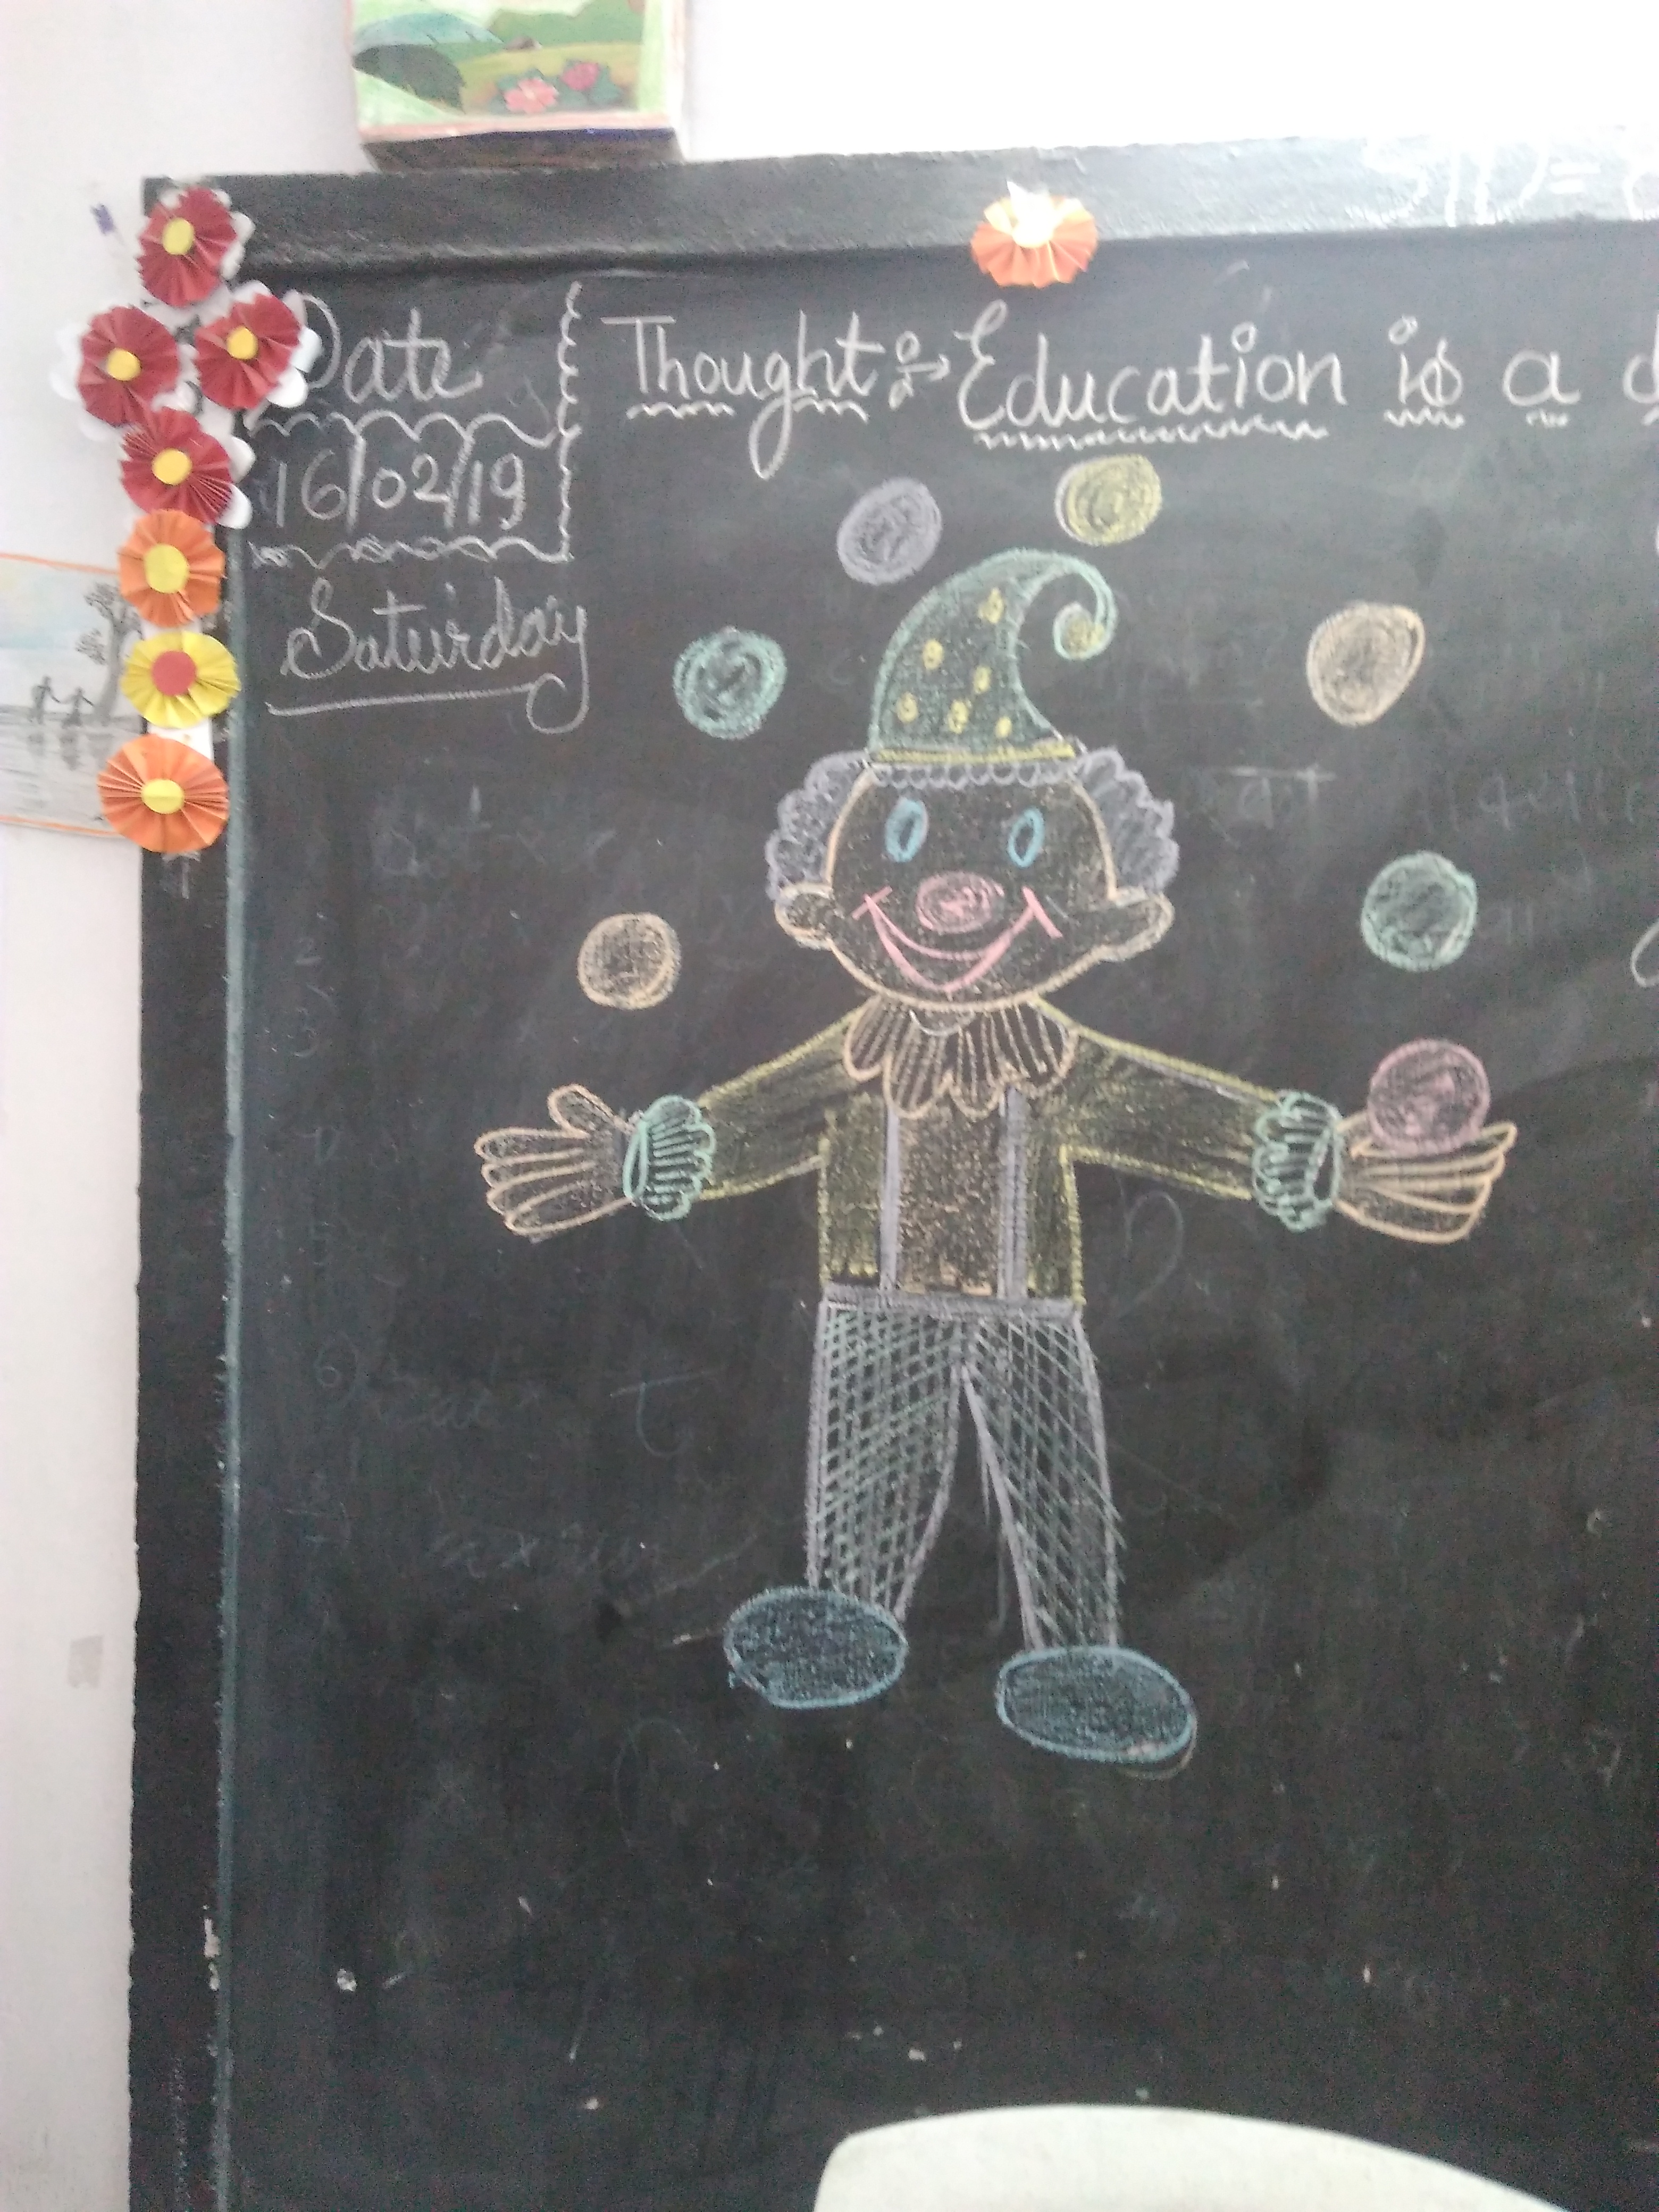 Date
16/02/19
Saturday
Thought :→ Education is a